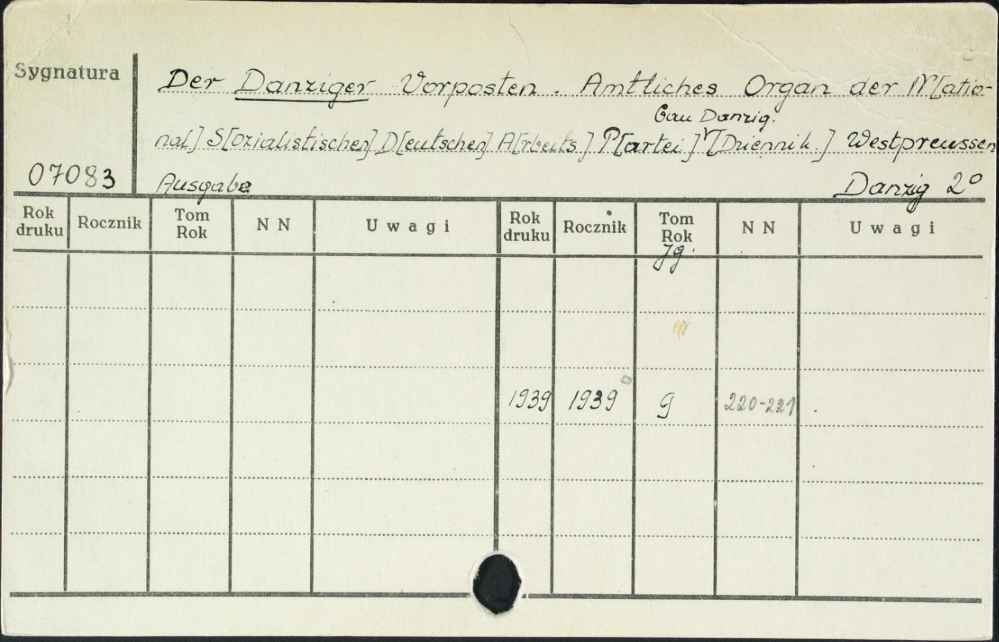 Sygnatura
Der Danziger Vorposten. Amtliches Organ der N[atio-
Gau Danzig.
nal] S[ozialistischen] D[eutschen] A[rbeits.] P[artei] [Dziennik.] Westpreussen
07083 Ausgabe Danzig 2°
Rok druku Rocznik Tom Rok N N Uwagi Rok druku Rocznik Tom Rok N N Uwagi
Jg.
1939 1939 9 220-221